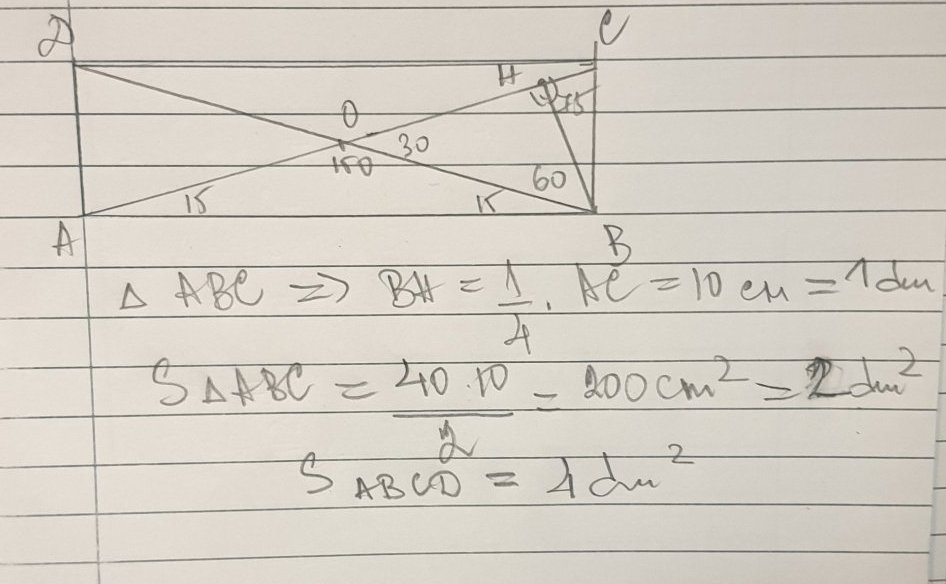 D C
H
O 75
30
150 60
15 15
A B
△ ABC => BH = 1/4 . AC = 10 cm = 1 dm
S△ABC = 40.10/2 = 200 cm² = 2 dm²
S ABCD = 4 dm²